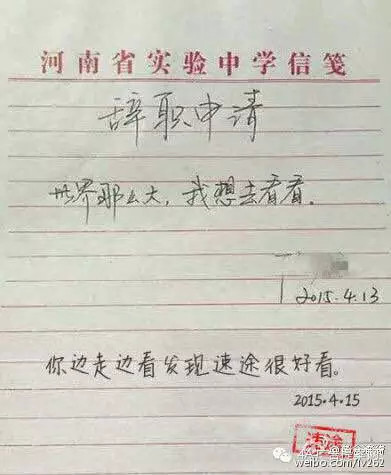 河南省实验中学信笺
辞职申请
世界那么大，我想去看看。
2015.4.13
你边走边看发现速途很好看。
2015.4.15
速途
weibo.com/lv262